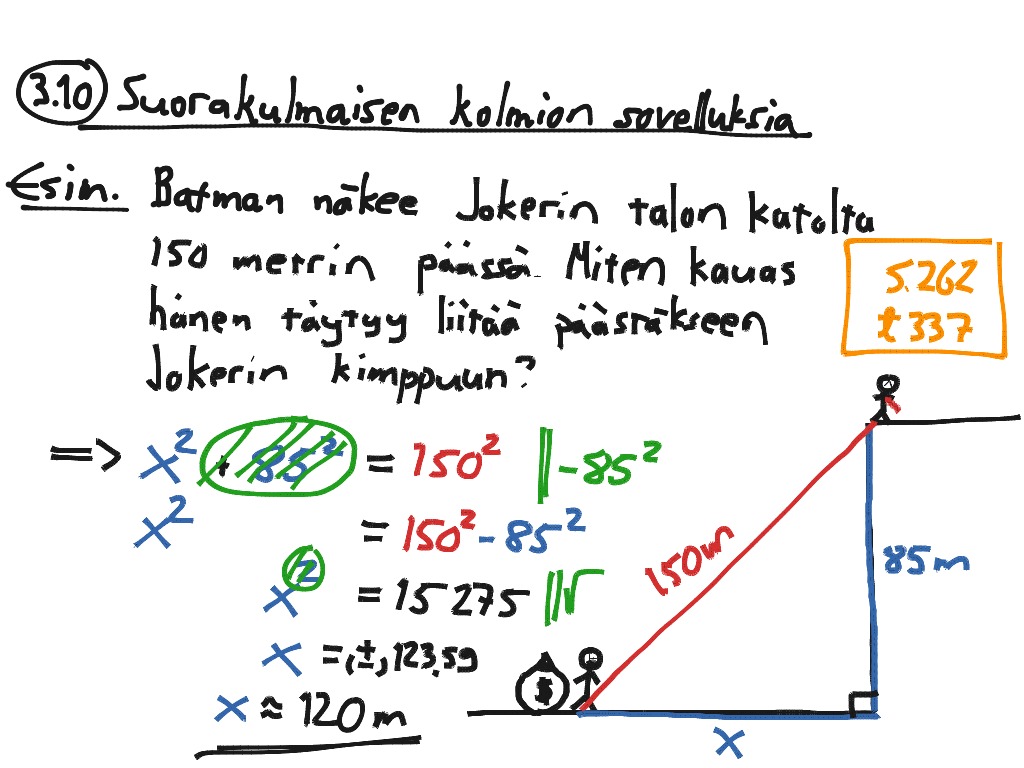 3.10 Suorakulmaisen kolmion sovelluksia
Esim. Batman näkee Jokerin talon katolta
150 metrin päässä. Miten kauas
hänen täytyy liitää päästäkseen
Jokerin kimppuun?
S.262
t 337
=> x² + 85² = 150² ||-85²
x² = 150² - 85²
x² = 15275 ||√
x = (±) 123,59
x ≈ 120 m
150m
85m
$
x